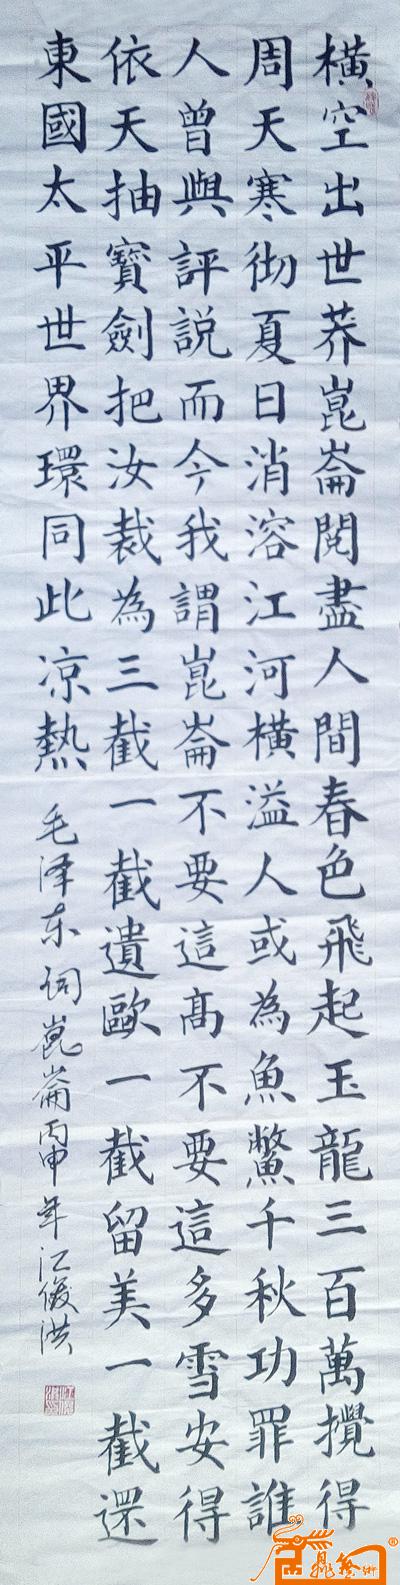 橫空出世莽崑崙閱盡人間春色飛起玉龍三百萬攪得
周天寒彻夏日消溶江河橫溢人或為魚鱉千秋功罪誰
人曾與評説而今我謂崑崙不要這高不要這多雪安得
依天抽寶劍把汝裁為三截一截遺歐一截留美一截還
東國太平世界環同此凉熱
毛泽东词崑崙丙申年江俊洪